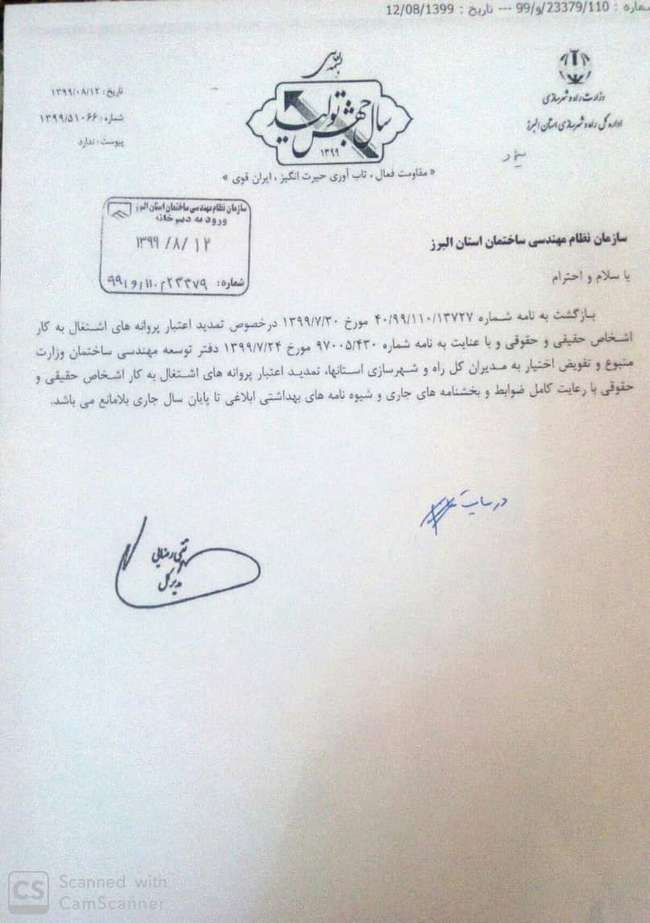 شماره : 99/و/23379/110 --- تاریخ : 12/08/1399
وزارت راه و شهرسازی
اداره کل راه و شهرسازی استان البرز
سال جهش تولید
۱۳۹۹
« مقاومت فعال ، تاب آوری حیرت انگیز ، ایران قوی »
تاریخ: ۱۳۹۹/۰۸/۱۲
شماره: ۱۳۹۹/۵۱۰۶۶
پیوست: ندارد
سازمان نظام مهندسی ساختمان استان البرز
ورود به دبیرخانه
۱۳۹۹/۸/۱۲
شماره: ۹۹/و/۱۱۰/۲۳۳۷۹
سازمان نظام مهندسی ساختمان استان البرز
با سلام و احترام
بازگشت به نامه شماره ۴۰/۹۹/۱۱۰/۱۳۷۲۷ مورخ ۱۳۹۹/۷/۳۰ درخصوص تمدید اعتبار پروانه های اشتغال به کار
اشخاص حقیقی و حقوقی و با عنایت به نامه شماره ۹۷۰۰۵/۴۳۰ مورخ ۱۳۹۹/۷/۲۴ دفتر توسعه مهندسی ساختمان وزارت
متبوع و تفویض اختیار به مدیران کل راه و شهرسازی استانها، تمدید اعتبار پروانه های اشتغال به کار اشخاص حقیقی و
حقوقی با رعایت کامل ضوابط و بخشنامه های جاری و شیوه نامه های بهداشتی ابلاغی تا پایان سال جاری بلامانع می باشد.
در سایت
تقی رضایی
مدیر کل
CS Scanned with
CamScanner